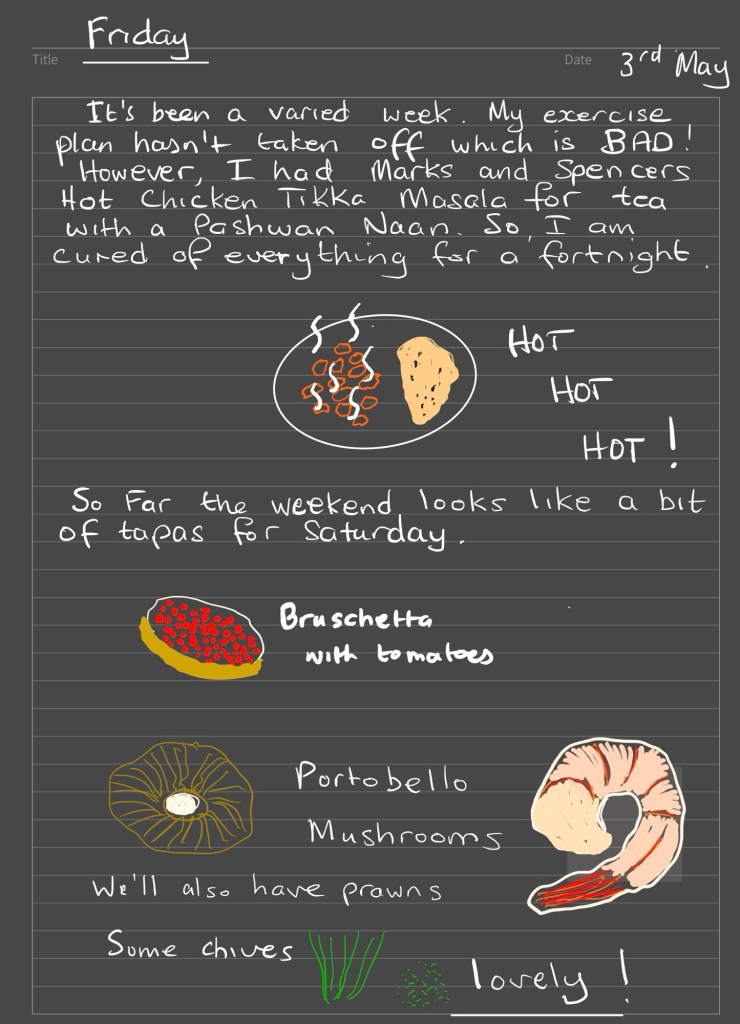 Friday
Title
Date 3rd May
It's been a varied week. My exercise
plan hasn't taken off which is BAD!
However, I had Marks and Spencers
Hot Chicken Tikka Masala for tea
with a Pashwan Naan. So, I am
cured of everything for a fortnight.
HOT
HOT
HOT!
So Far the weekend looks like a bit
of tapas for Saturday.
Bruschetta
with tomatoes
Portobello
Mushrooms
We'll also have prawns
Some chives
lovely!